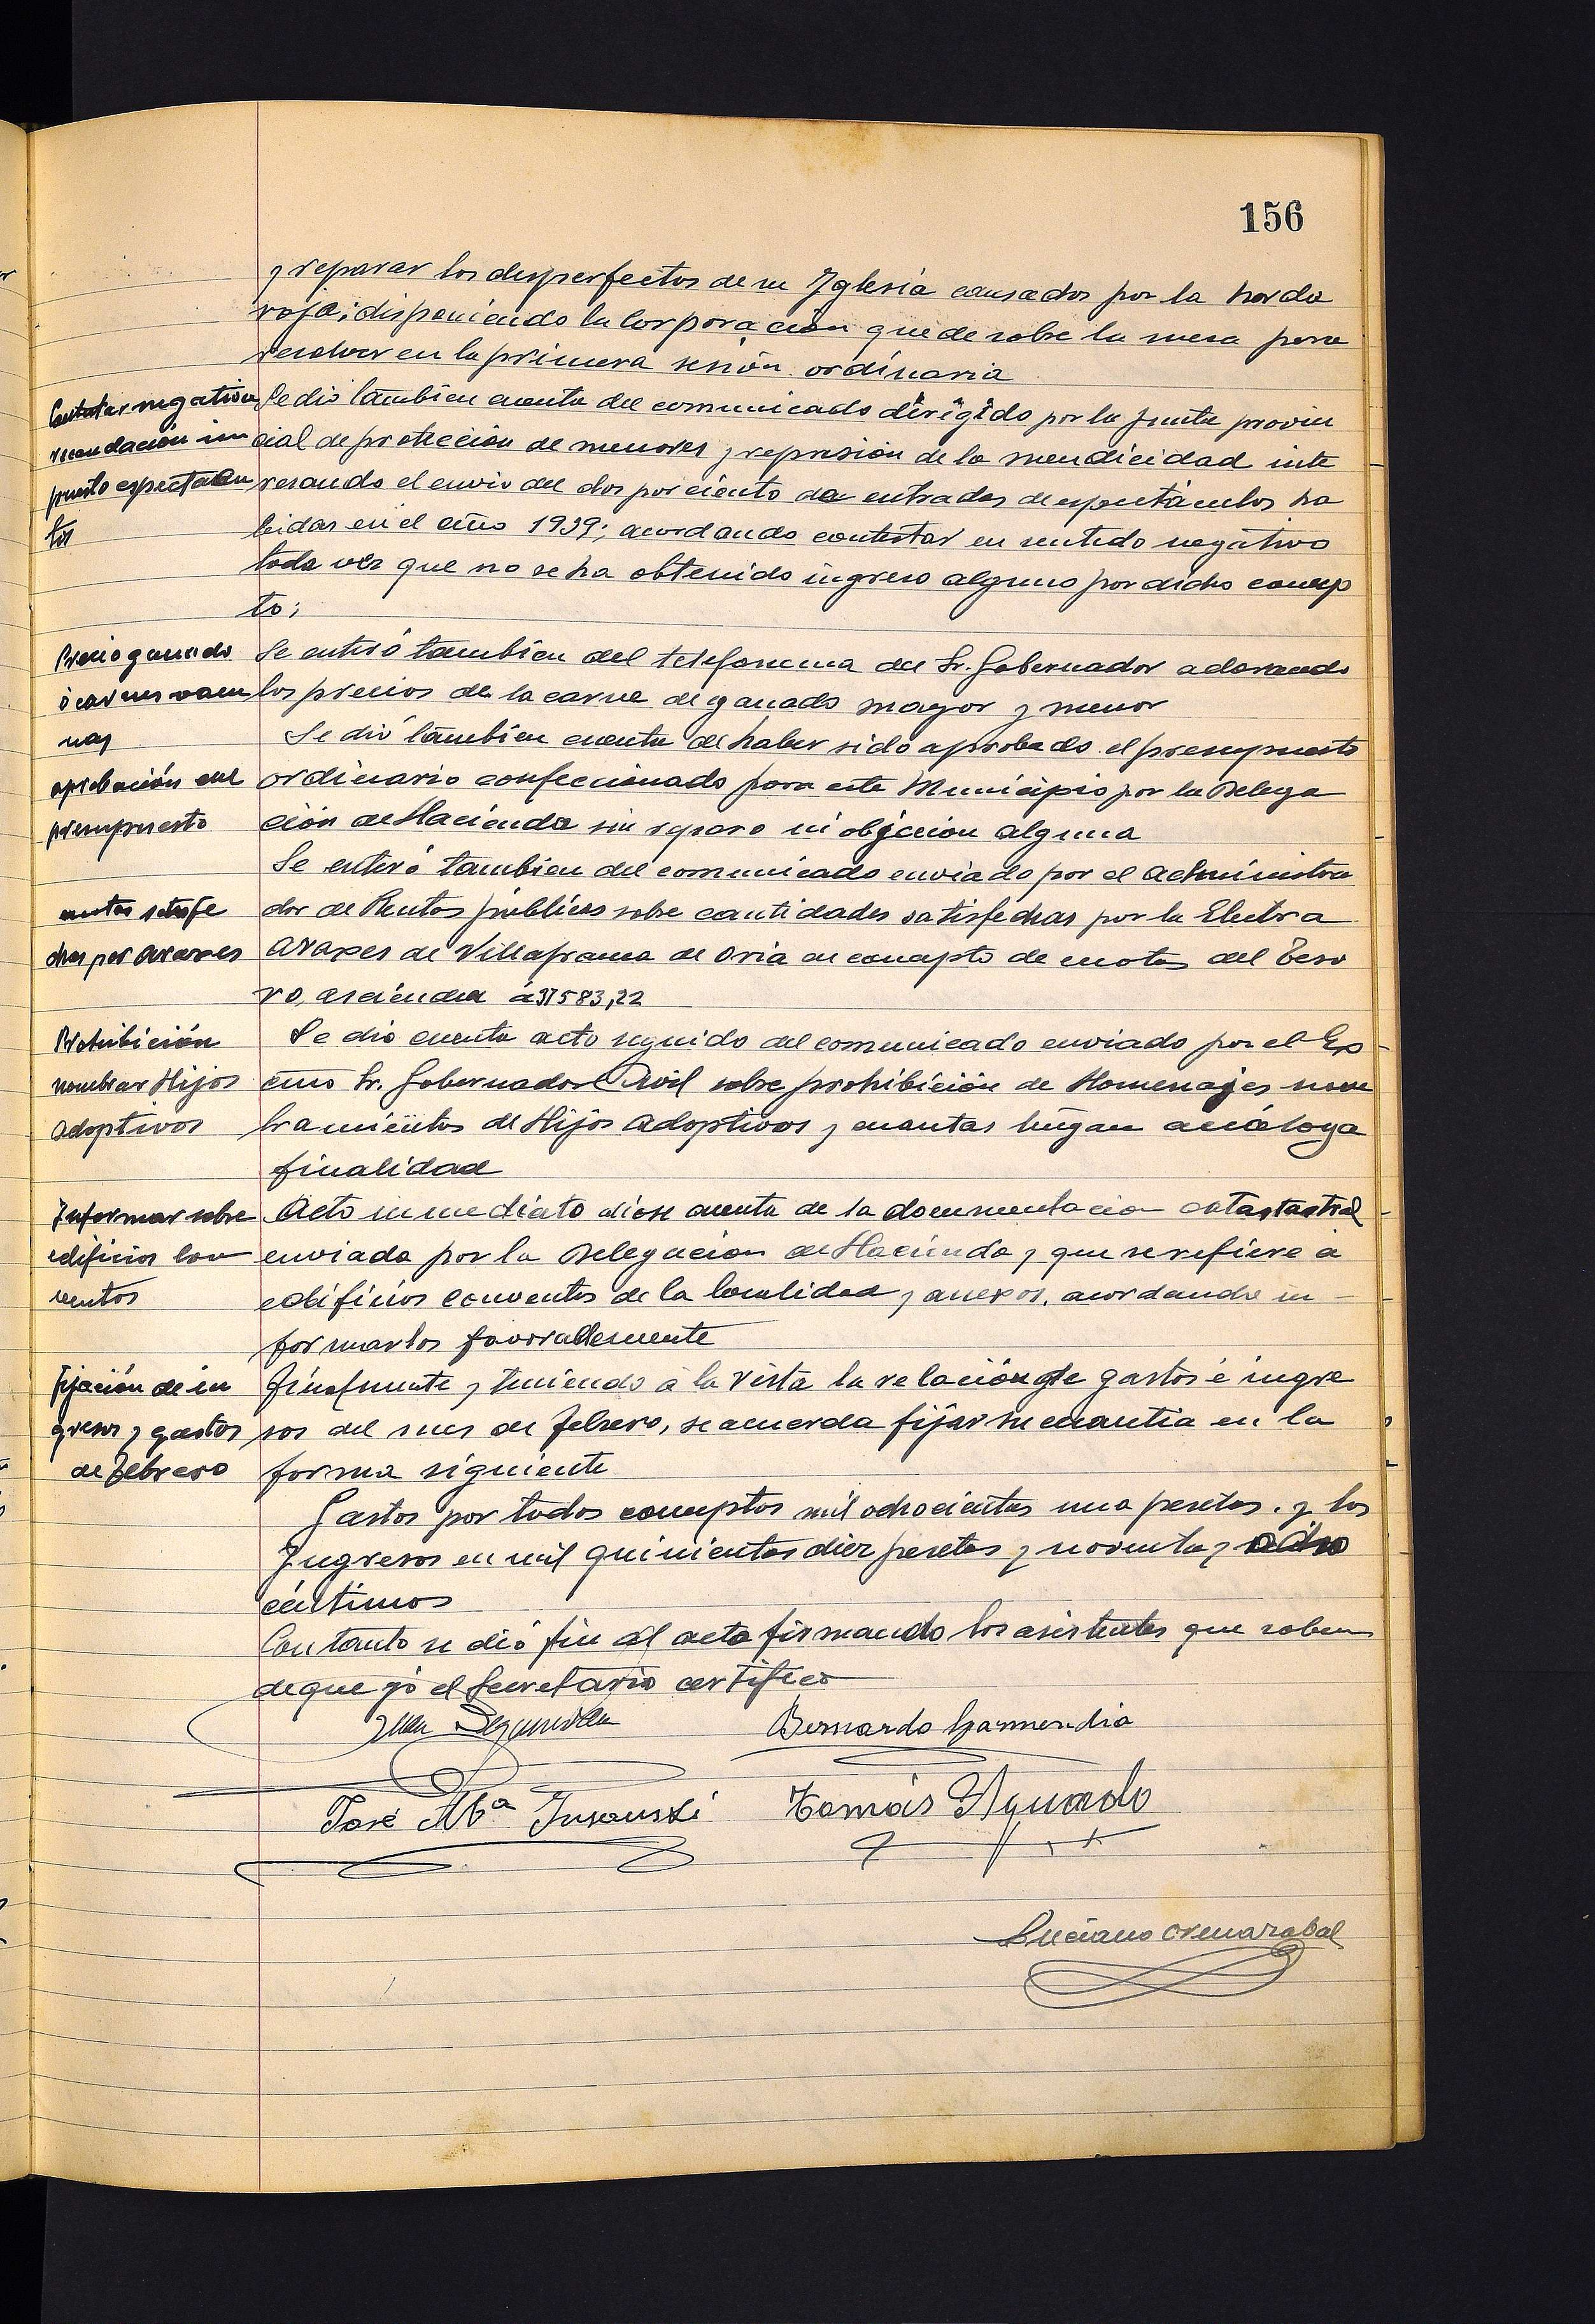 156
y reparar los desperfectos de su Yglesia causados por la horda
roja; disponiendo la Corporación quede sobre la mesa para
resolver en la primera sesión ordinaria
Contestar negativa
recaudación im
puesto espectácu
los
Se dió tambien cuenta del comunicado dirigido por la Junta provin
cial de protección de menores y represión de la mendicidad inte
resando el envio del dos por ciento de entradas de espectáculos ha
bidas en el año 1939; acordando contestar en sentido negativo
toda vez que no se ha obtenido ingreso alguno por dicho concep
to;
Precio ganado
ó carnes vacu
nas
Se enteró tambien del telefonema del Sr. Gobernador aclarando
los precios de la carne de ganado mayor y menor
aprobación del
presupuesto
Se dió tambien cuenta de haber sido aprobado el presupuesto
ordinario confeccionado para este Municipio por la Delega
ción de Hacienda sin reparo ni objecion alguna
cuotas satisfe
chas por Araxes
Se enteró tambien del comunicado enviado por el Administra
dor de Rentas públicas sobre cantidades satisfechas por la Electra
Araxes de Villafranca de Oria en concepto de cuotas del Teso
ro, asciende á 37583,22
Prohibición
nombrar Hijos
adoptivos
Se dio cuenta acto seguido del comunicado enviado por el Ex
cmo Sr. Gobernador Civil sobre prohibición de Homenajes nom
bramientos de Hijos Adoptivos y cuantas tengan análoga
finalidad
Informar sobre
edificios con
ventos
Acto inmediato diose cuenta de la documentacion catastastral
enviada por la Delegacion de Hacienda y que se refiere a
edificios conventos de la localidad y anexos, acordando in-
formarlos favorablemente
Fijación de in
gresos y gastos
de Febrero
Finalmente y teniendo a la vista la relación de gastos é ingre
sos del mes de Febrero, se acuerda fijar su cuantia en la
forma siguiente
Gastos por todos conceptos mil ochocientas una pesetas. y los
Ingresos en mil quinientas diez pesetas y noventa y ocho
céntimos
Con tanto se dió fin al acta firmando los asistentes que saben
de que yó el Secretario certifico
Bernardo Garmendia
José Mª Insausti
Tomás Aguado
Luciano Ormazabal